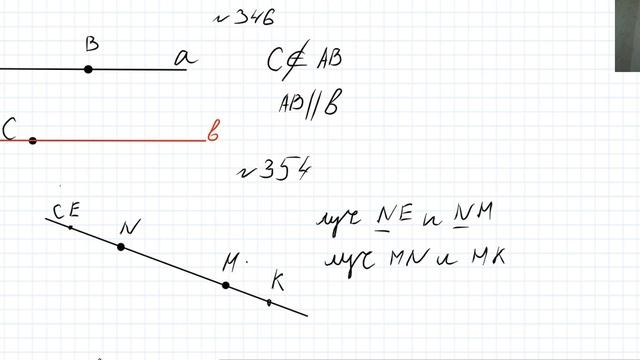 №346
B a
C ∉ AB
AB || в
C в
№354
C E N M K
луч NE и NM
луч MN и MK